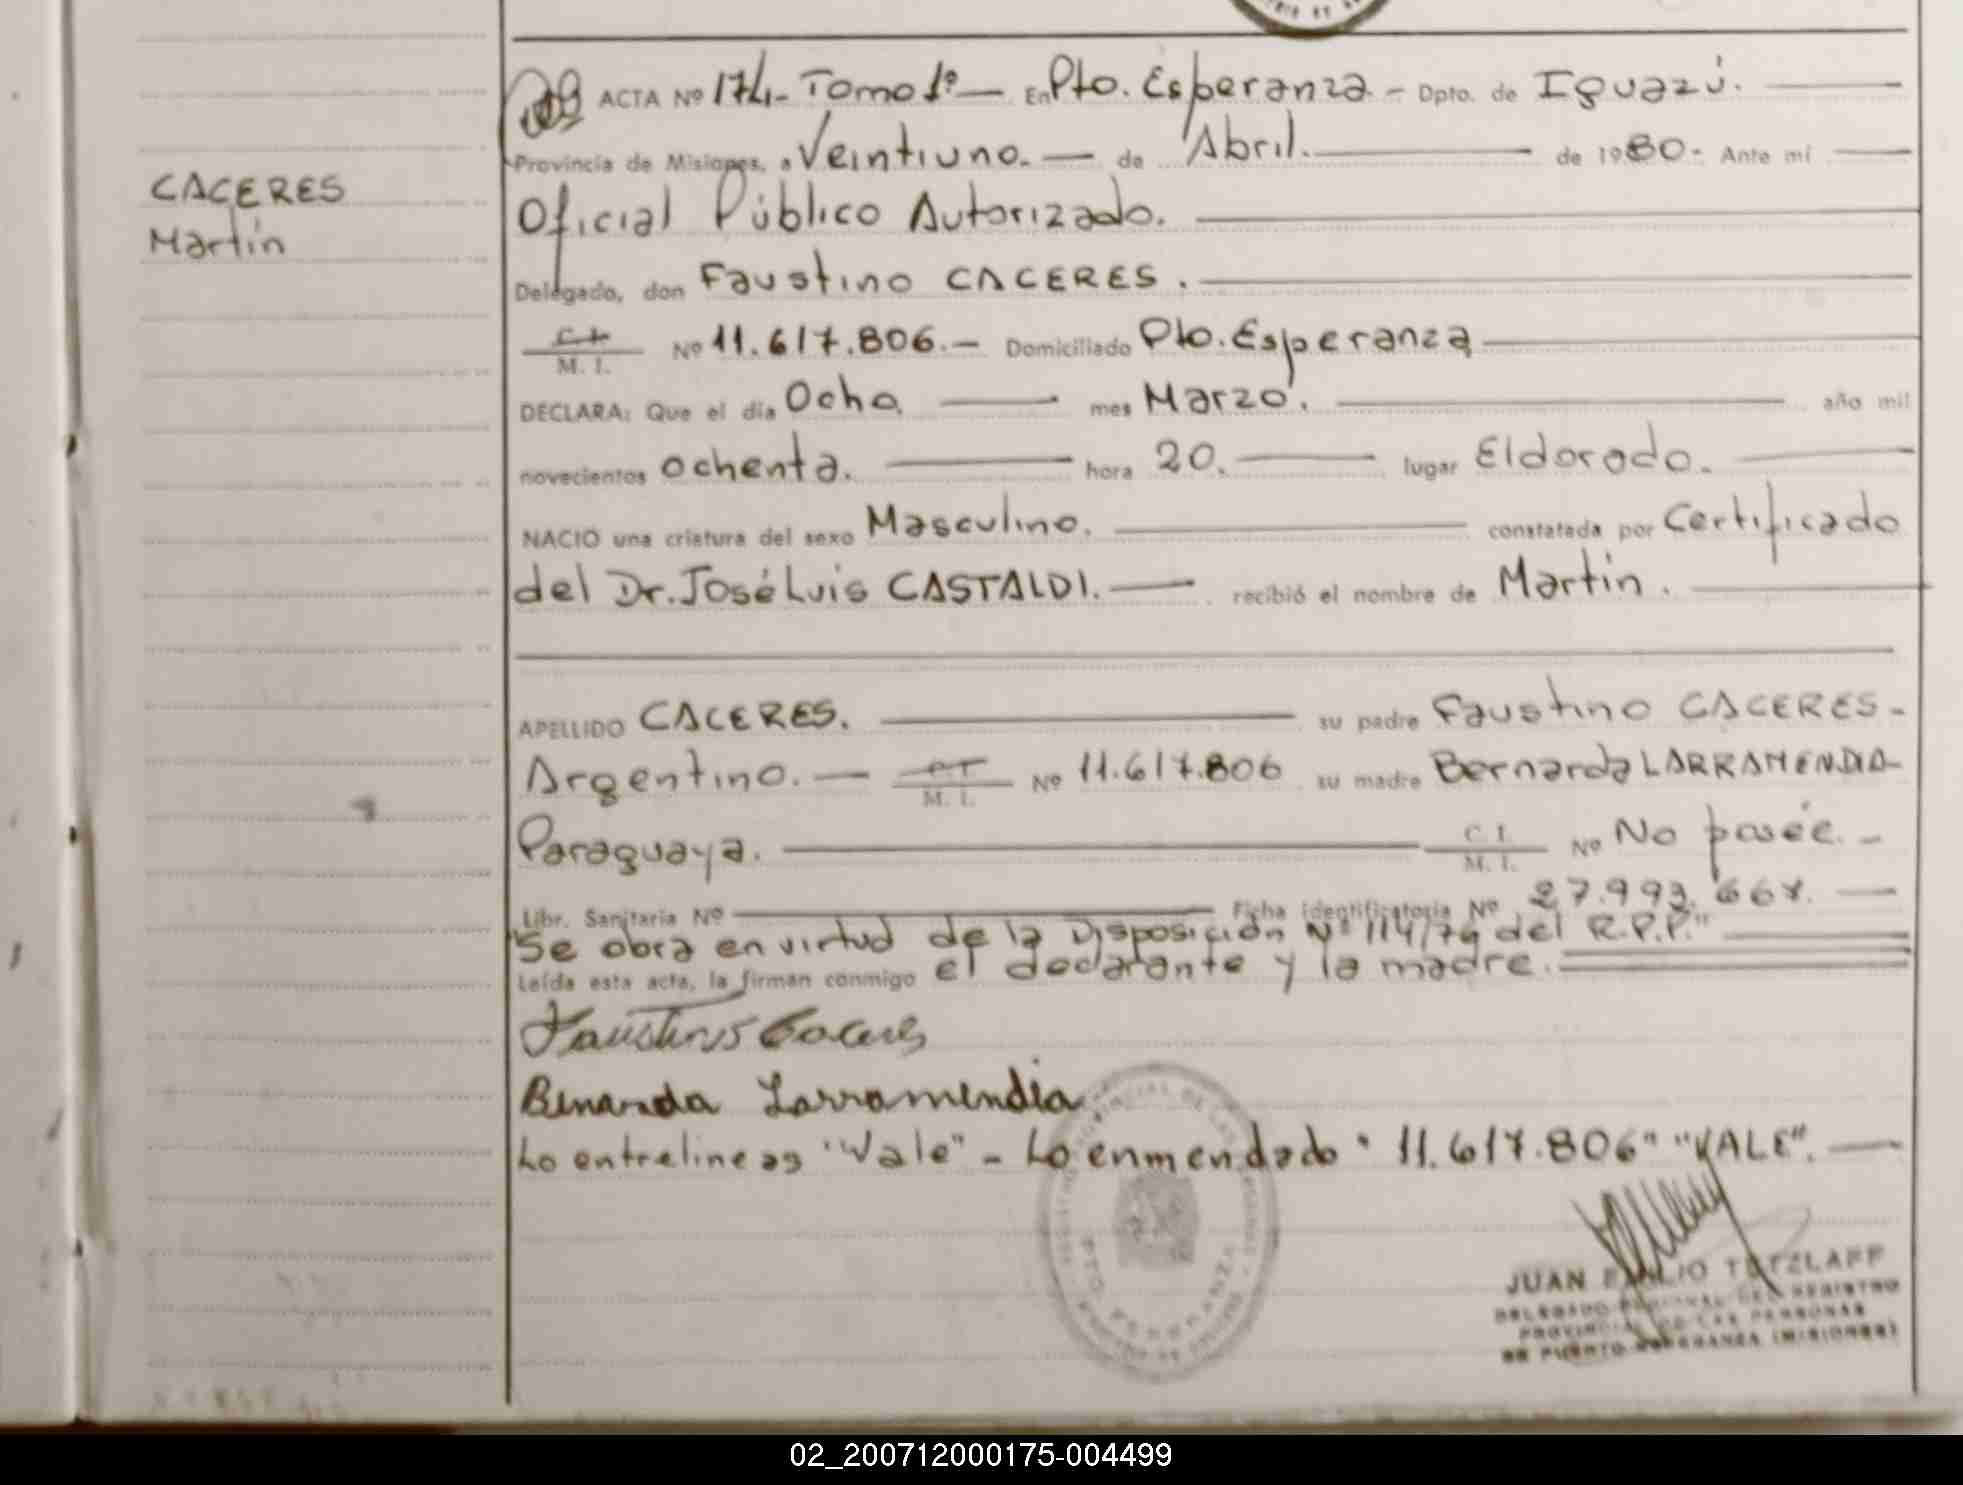 CACERES
Martín
ACTA Nº 174.- Tomo 1º — En Pto. Esperanza.- Dpto. de Iguazú.
Provincia de Misiones, a Veintiuno. — de Abril. — de 1980.- Ante mí
Oficial Público Autorizado.
Delegado, don Faustino CACERES.
C.I. M. I. Nº 11.617.806.— Domiciliado Pto. Esperanza
DECLARA: Que el día Ocho — mes Marzo. — año mil
novecientos ochenta. — hora 20. — lugar Eldorado.
NACIO una criatura del sexo Masculino. — constatada por Certificado
del Dr. José Luis CASTALDI. — recibió el nombre de Martín.
APELLIDO CACERES. — su padre Faustino CACERES-
Argentino. — M. I. Nº 11.617.806 su madre Bernarda LARRAMENDIA-
Paraguaya. — C. I. M. I. Nº No posée.-
Libr. Sanitaria Nº — Ficha identificatoria Nº 27.993.
"Se obra en virtud de la Disposición Nº 114/79 del R.P.P."
Leída esta acta, la firman conmigo el declarante y la madre.
Faustino Caceres
Bernarda Larramendia
Lo entrelineas "Vale" - Lo enmendado "11.617.806" "VALE".
PTO. ESPERANZA
JUAN EMILIO TETZLAFF
DELEGADO DEL REGISTRO
PROVINCIAL DE LAS PERSONAS
DE PUERTO ESPERANZA (MISIONES)
02_200712000175-004499